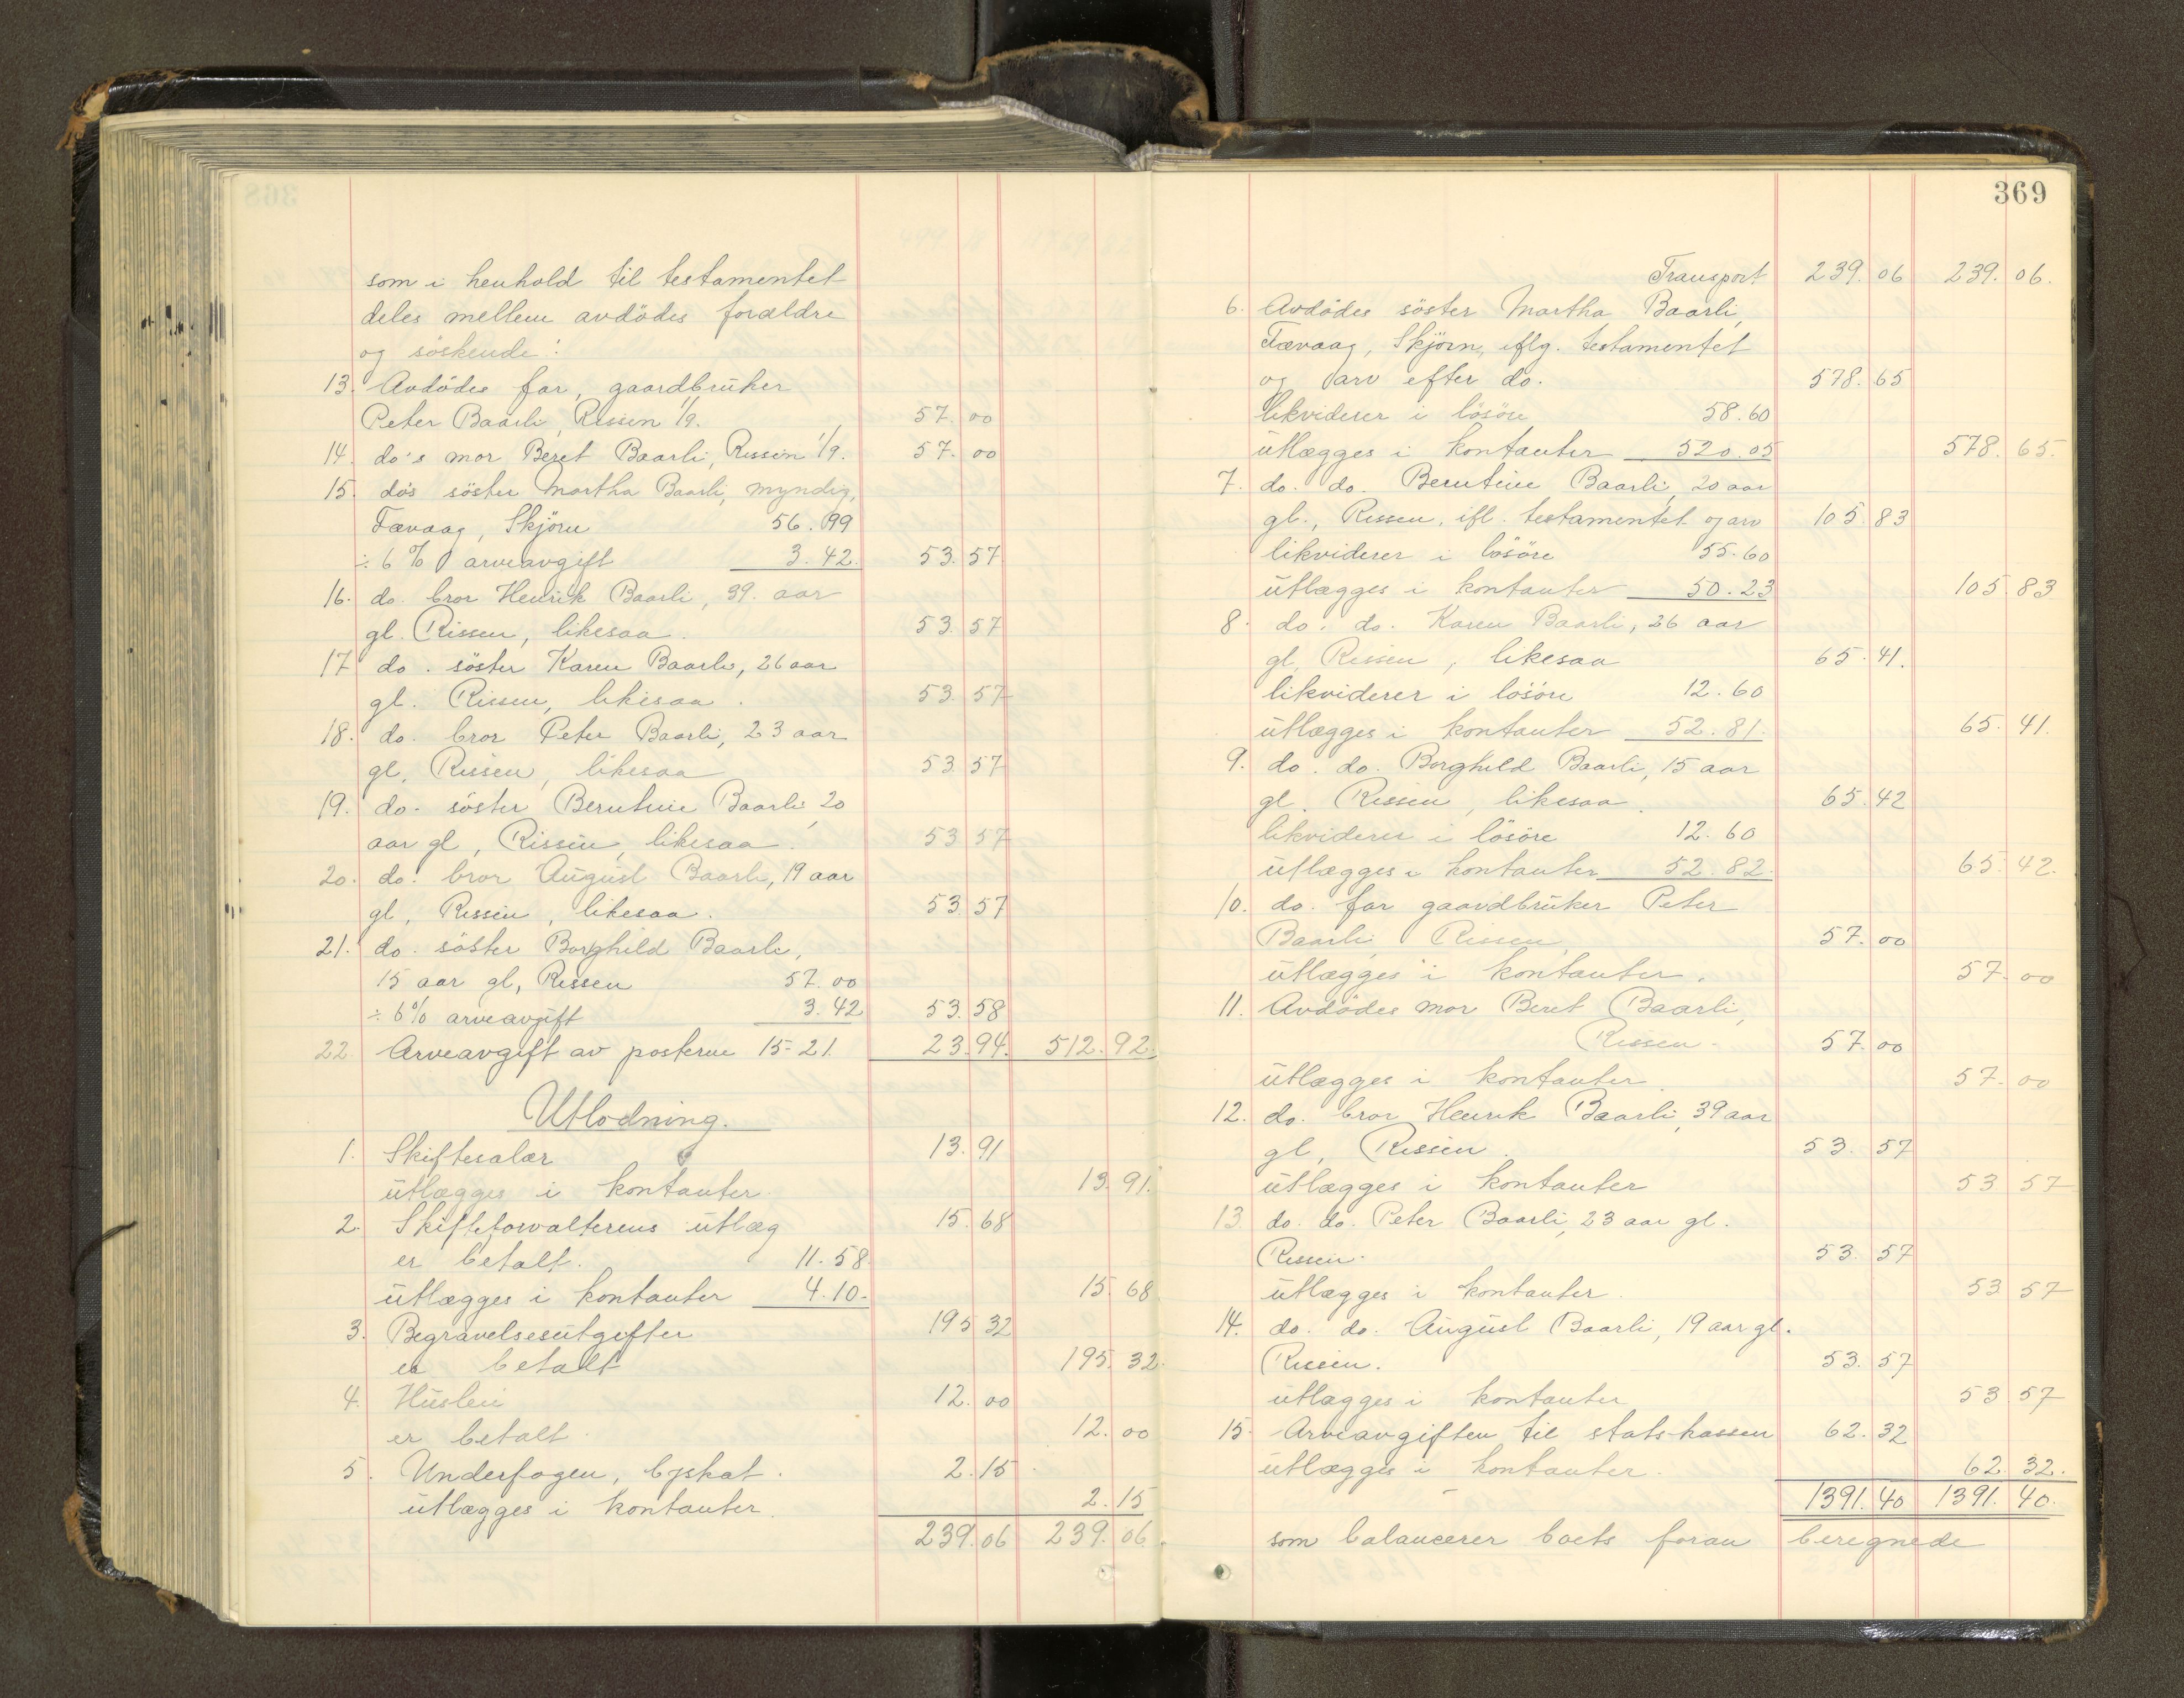 som i henhold til testamentet
deles mellem avdödes forældre
og söskende:
13. Avdödes far, gaardbruker
Peter Baarli, Rissen 1/9. 57.00
14. do's mor Beret Baarli, Rissen 1/9. 57.00
15. do's söster Martha Baarli, myndig,
Fævaag, Skjörn 56.99
÷ 6% arveavgift 3.42. 53.57
16. do. bror Henrik Baarli, 39. aar
gl. Rissen, likesaa. 53.57
17 do. söster Karen Baarli, 26 aar
gl. Rissen, likesaa. 53.57
18. do. bror Peter Baarli, 23 aar
gl, Rissen, likesaa 53.57
19. do. söster Berntine Baarli, 20
aar gl, Rissen, likesaa. 53 57
20. do. bror August Baarli, 19 aar
gl, Rissen, likesaa. 53 57
21. do. söster Borghild Baarli,
15 aar gl, Rissen 57.00
÷ 6% arveavgift 3.42 53.58
22. Arveavgift av posterne 15-21. 23.94. 512.92.
Utlodning.
1. Skiftesalær 13.91
utlægges i kontanter. 13.91.
2. Skifteforvalterens utlæg 15.68
er betalt. 11.58.
utlægges i kontanter 4.10. 15.68
3. Begravelsesutgifter 195 32
er betalt 195.32.
4. Husleie 12.00
er betalt. 12.00
5. Underfogen, byskat. 2.15
utlægges i kontanter. 2.15
239.06 239.06.
369
Transport 239.06 239.06.
6. Avdödes söster Martha Baarli,
Fævaag, Skjörn, iflg. testamentet
og arv efter do. 578.65
likviderer i lösöre 58.60
utlægges i kontanter 520.05 578.65.
7. do. do. Berntine Baarli, 20 aar
gl., Rissen, ifl. testamentet og arv 105.83
likviderer i lösöre 55.60
utlægges i kontanter 50.23 105.83
8. do. do. Karen Baarli, 26 aar
gl, Rissen, likesaa 65.41.
likviderer i lösöre 12.60
utlægges i kontanter 52.81. 65.41.
9. do. do. Borghild Baarli, 15 aar
gl. Rissen, likesaa. 65.42
likviderer i lösöre 12.60
utlægges i kontanter 52.82. 65.42.
10. do. far gaardbruker Peter
Baarli, Rissen, 57.00
utlægges i kontanter. 57.00
11. Avdödes mor Beret Baarli,
Rissen. 57.00
utlægges i kontanter. 57.00
12. do. bror Henrik Baarli, 39 aar
gl, Rissen. 53.57
utlægges i kontanter 53 57
13 do. do. Peter Baarli, 23 aar gl.
Rissen. 53.57
utlægges i kontanter. 53 57
14. do. do. August Baarli, 19 aar gl.
Rissen. 53.57
utlægges i kontanter 53 57
15. Arveavgiften til statskassen 62.32
utlægges i kontanter. 62.32.
1391.40 1391.40.
som balancerer boets foran beregnede